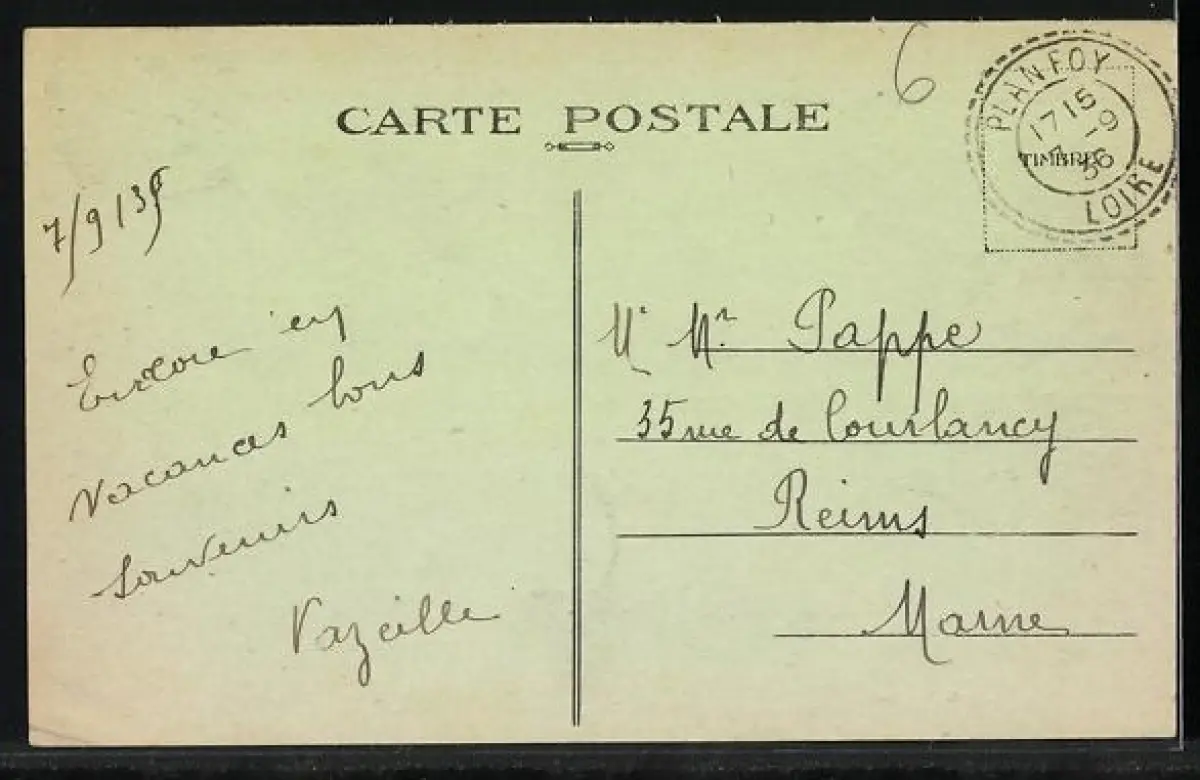 CARTE POSTALE
6
PLANFOY
17 15
7 -9
36
LOIRE
TIMBRE
7/9/35
Encore en
vacances bons
souvenirs
Vazeille
Mr Pappe
35 rue de Courlancy
Reims
Marne